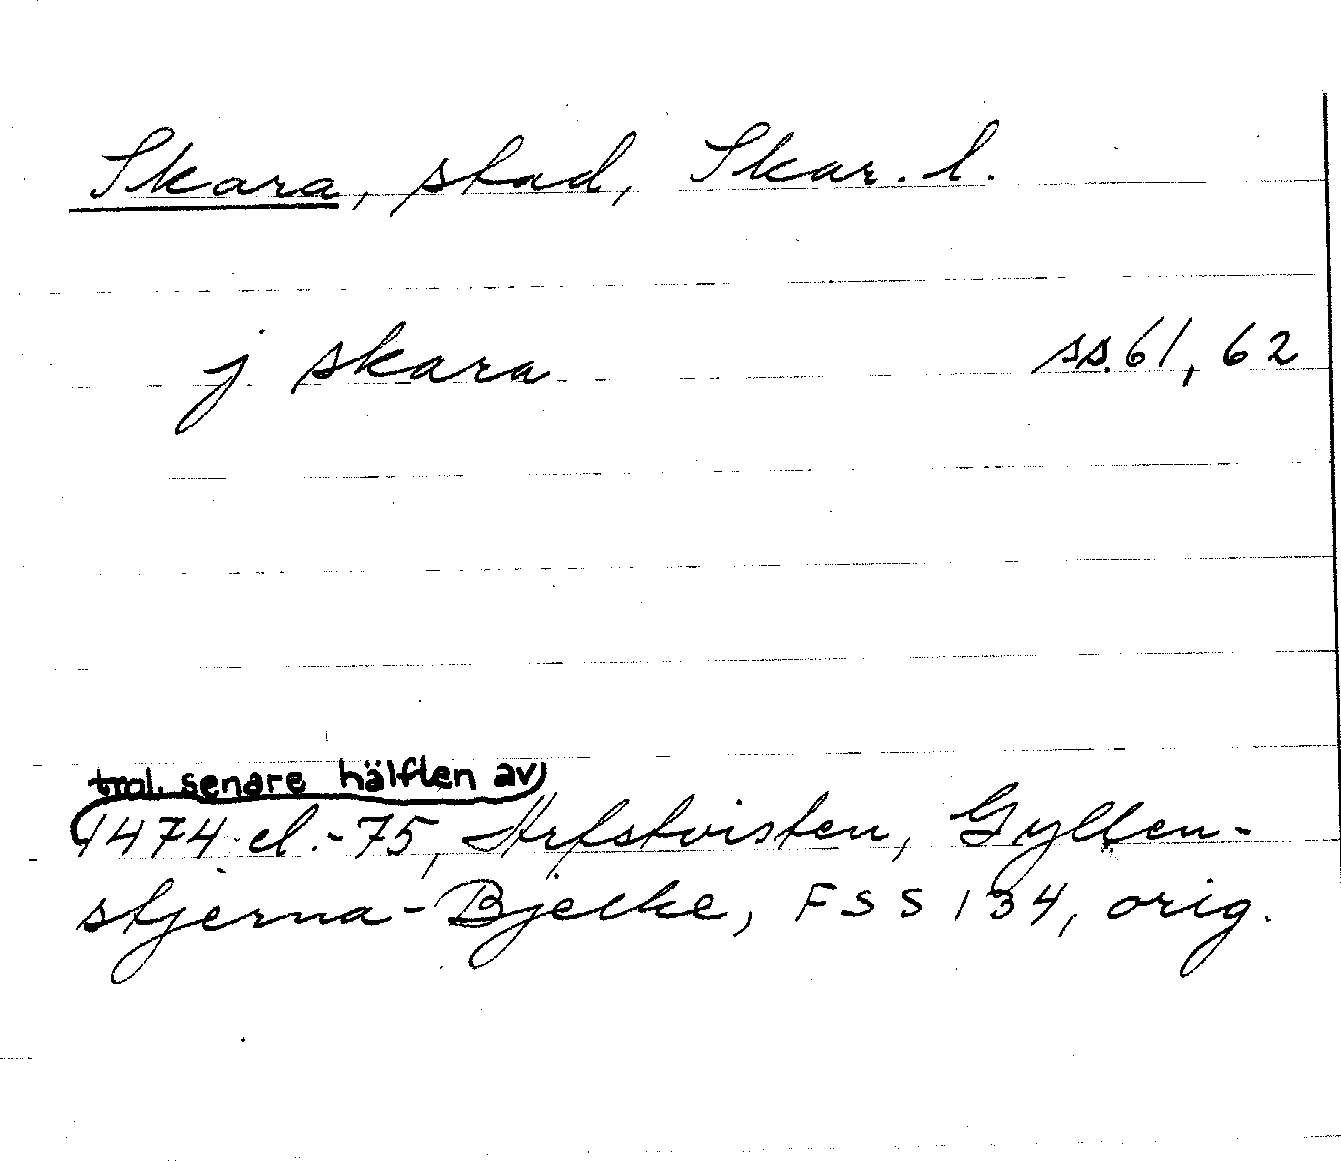 Skara, stad, Skar. l.
j skara ss. 61, 62
trol. senare hälften av
1474 el. -75, Arfstvisten, Gyllen-
stjerna-Bjelke, FSS 134, orig.